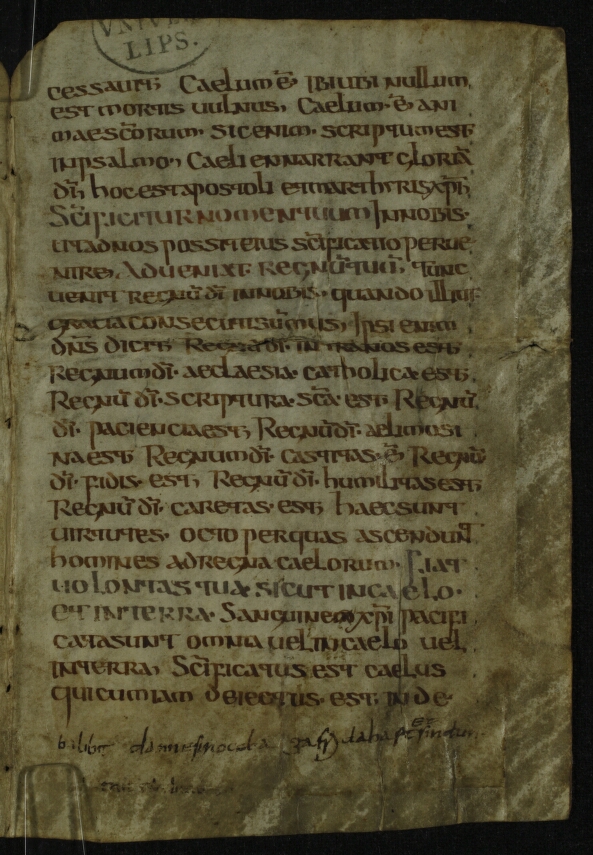 LIPS.
cessauit Caelum ē ibi ubi nullum
est mortis uulnus, Caelum ē ani
maescōrum sicenim scriptumest
inpsalmo, Caeli ennarrant gloriā
dī, hocestapostoli etmarthyrisxpī,
Scīficitur nomentuum Innobis
utadnos possit eius scīficatio perue
nire, Adueniat regnū tuū, tunc
uenit regnū dī innobis quando illius
gratiaconsecutisumus, Ipsi enim
dns dicit Regnū dī intrauosest
Regnumdī aeclaesia catholica est
Regnū dī scriptura scā est Regnū
dī paciencia est, Regnūdī aelimosi
naest Regnumdī castitas ē Regnū
dī fidis est Regnū dī humilitasest
Regnū dī caretas est haecsunt
uirtutes octo perquas ascendunt
homines adregnacaelorum Fiat
uolontas tua sicut incaelo
et interra Sanguinem xpī pacifi
catasunt omnia uelincaelo uel
interra, Scīficatus est caelus
quicumiam deiectus est inde